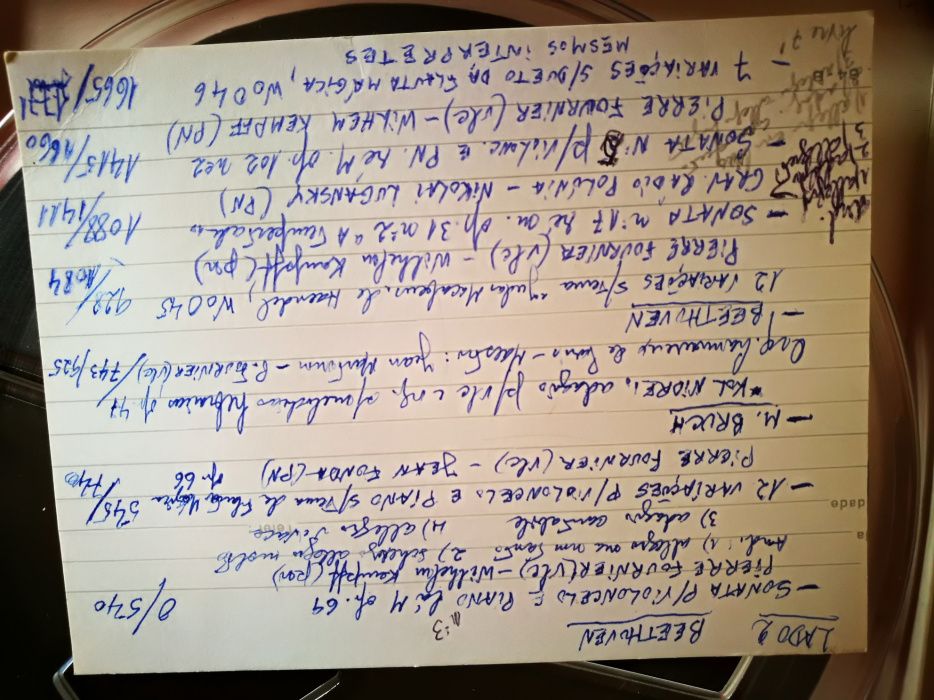 LADO 2 BEETHOVEN
- SONATA P/VIOLONCELO E PIANO Lá M op. 69 nº3 0/540
PIERRE FOURNIER (vlc) - Wilhelm Kempff (pn)
And.: 1) allegro ma non tanto 2) scherzo allegro molto
3) adagio cantabile 4) allegro vivace
- 12 VARIAÇÕES P/VIOLONCELO E PIANO S/Tema da Flauta Mágica 545/740
PIERRE FOURNIER (Vlc) - JEAN FONDA (PN) op 66
- M. BRUCH
- KOL NIDREI, adagio p/vlc e orq. s/melodias hebraicas op. 47
Orq. Lamoureux de Paris - Maestro: Jean Martinon - P. FOURNIER (Vlc) / 743/925
- BEETHOVEN
12 VARIAÇÕES S/Tema Judas Macabeus, de Haendel, WoO 45 928/1084
PIERRE FOURNIER (vlc) - Wilhelm Kempff (pn)
- SONATA nº 17 Ré m. op. 31 nº 2 "A Tempestade" 1088/1411
GRAV. RADIO POLÔNIA - NIKOLAI LUGANSKY (PN)
- SONATA N. 5 p/ Violonc. E PN. Ré M. op. 102 nº 2 1415/1660
PIERRE FOURNIER (vlc) - WILHEM KEMPFF (PN)
7 VARIAÇÕES S/DUETO DA FLAUTA MÁGICA, WoO 46 1665/
MESMOS INTÉRPRETES